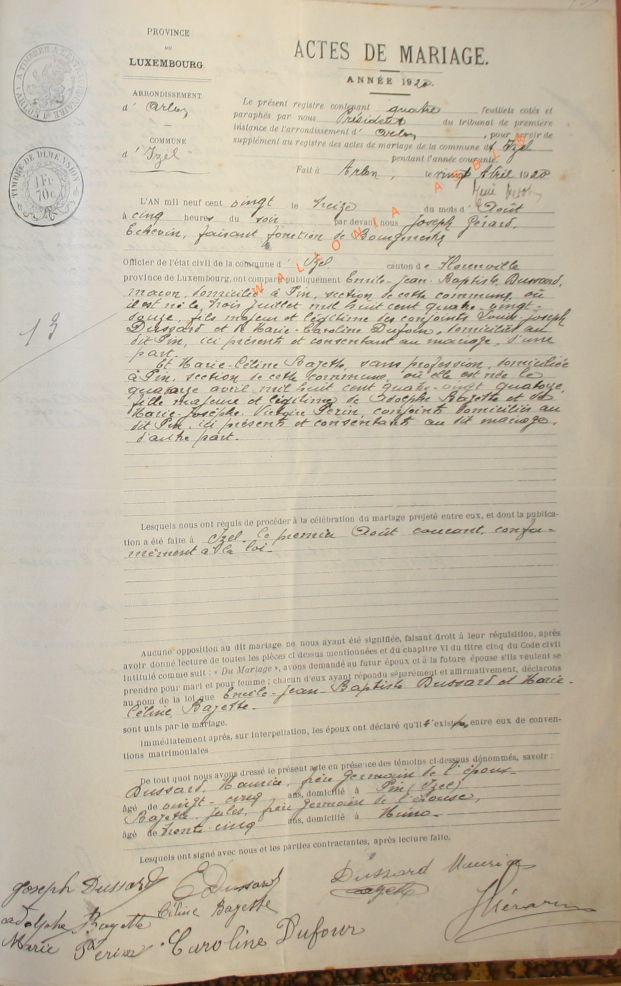 PROVINCE
DU
LUXEMBOURG.
ARRONDISSEMENT
d' Arlon
COMMUNE
d' Izel
TIMBRE DE DIMENSION
1 Fr
70 c
ACTES DE MARIAGE.
ANNÉE 1920.
Le présent registre contenant quatre feuillets cotés et
paraphés par nous Président du tribunal de première
instance de l'arrondissement d' Arlon, pour servir de
supplément au registre des actes de mariage de la commune d' Izel
pendant l'année courante
Fait à Arlon, le vingt Avril 1920
WALTONIA ASBL
13
L'AN mil neuf cent vingt le treize du mois d' Août
à cinq heures du soir par devant nous Joseph Gérard,
Echevin, faisant fonction de Bourgmestre
Officier de l'état civil de la commune d' Izel canton de Florenville
province de Luxembourg, ont comparu publiquement Emile-Jean-Baptiste Dussard,
maçon, domicilié à Pin, section de cette commune, où
il est né le trois juillet mil huit cent quatre-vingt-
douze, fils majeur et légitime des conjoints Louis-Joseph
Dussard et Marie-Caroline Dufour, domiciliés au
dit Pin, ici présents et consentant au mariage, d'une
part.
Et Marie-Céline Bazette, sans profession, domiciliée
à Pin, section de cette commune, où elle est née le
quatorze avril mil huit cent quatre-vingt quatorze,
fille majeure et légitime de Adolphe Bazette et de
Marie-Josèphe Victoire Perin, conjoints domiciliés au
dit Pin, ici présents et consentants au dit mariage,
d'autre part.
Lesquels nous ont requis de procéder à la célébration du mariage projeté entre eux, et dont la publica-
tion a été faite à Izel le premier Août courant, confor-
mément à la loi.
Aucune opposition au dit mariage ne nous ayant été signifiée, faisant droit à leur réquisition, après
avoir donné lecture de toutes les pièces ci dessus mentionnées et du chapitre VI du titre cinq du Code civil
intitulé comme suit : « Du Mariage », avons demandé au futur époux et à la future épouse s'ils veulent se
prendre pour mari et pour femme ; chacun d'eux ayant répondu séparément et affirmativement, déclarons
au nom de la loi que Emile-Jean-Baptiste Dussard et Marie-
Céline Bazette
sont unis par le mariage.
Immédiatement après, sur interpellation, les époux ont déclaré qu'il existe entre eux de conven-
tions matrimoniales
De tout quoi nous avons dressé le présent acte en présence des témoins ci-dessus dénommés, savoir :
Dussard, Maurice, frère germain de l'époux
âgé de vingt-cinq ans, domicilié à Pin (Izel)
Bazette, Jules, frère germain de l'épouse,
âgé de trente cinq ans, domicilié à
Lesquels ont signé avec nous et les parties contractantes, après lecture faite.
Joseph Dussard E Dussard Dussard Maurice
adolphe Bazette Céline Bazette Bazette
Marie Perin Caroline Dufour J Gérard